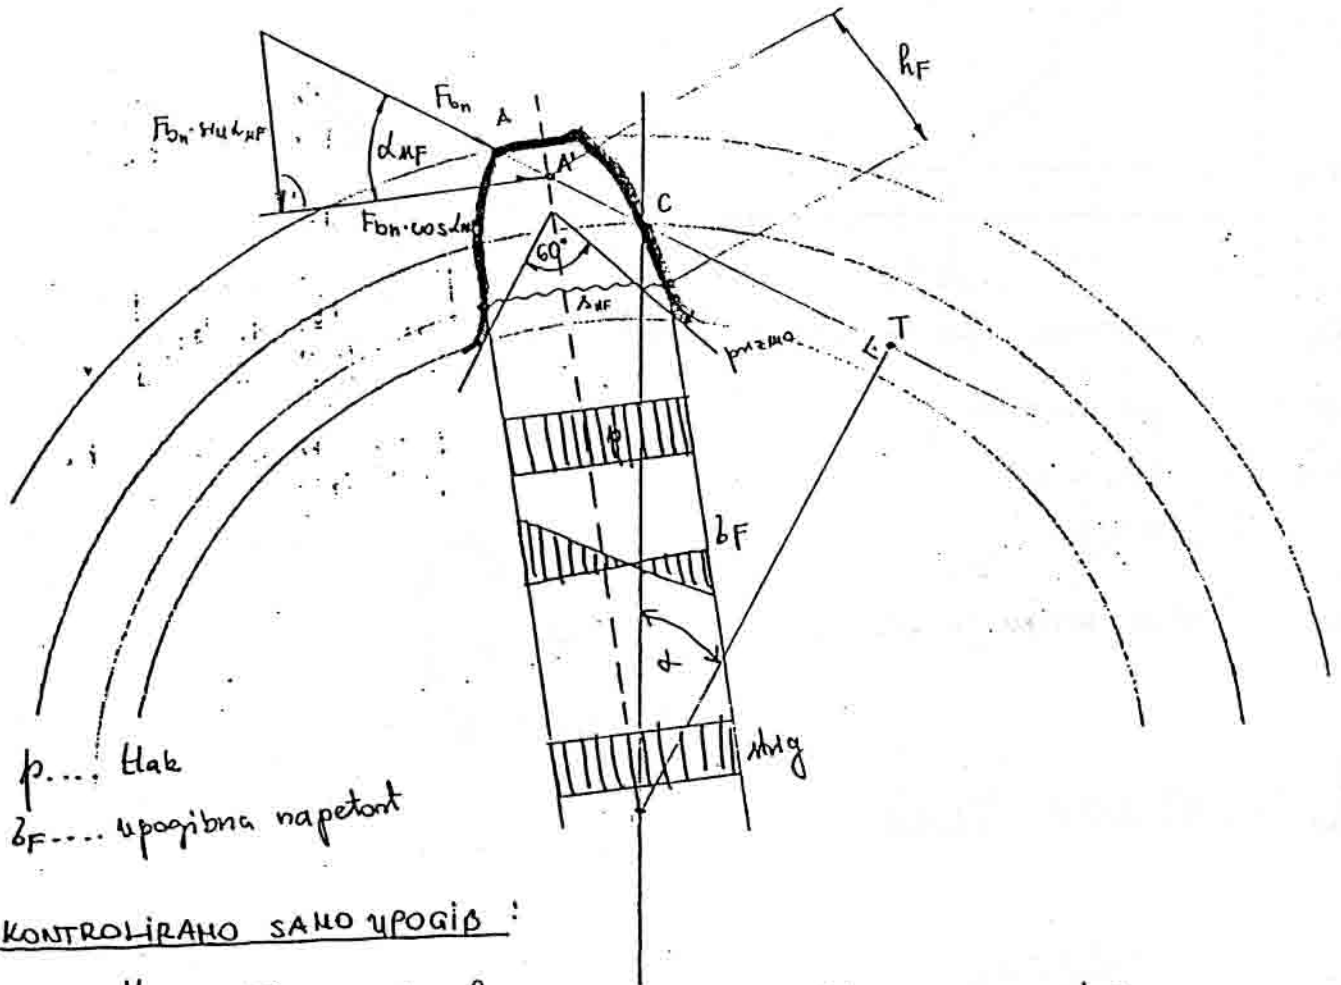 hF
Fbn
A
Fbn·sin αnF
αnF
A'
Fbn·cos αn
C
60°
snF
T
prizma
p
δF
α
strig
p.... tlak
δF.... upogibna napetost
KONTROLIRAMO SAMO UPOGIB :